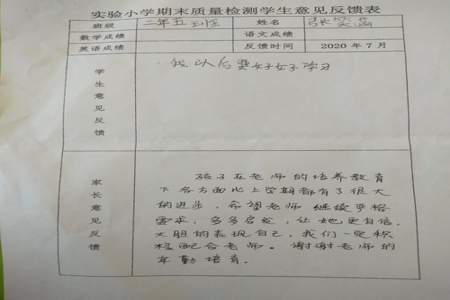 实验小学期末质量检测学生意见反馈表
班级 二年五班 姓名
数学成绩 语文成绩
英语成绩 反馈时间 2020年7月
学生意见反馈
我以后要好好学习
家长意见反馈
孩子在老师的培养教育
下各方面比上学期都有了很大
的进步,希望老师继续严格
要求,多多启发,让她更自信,
大胆的表现自己,我们一定积
极配合老师。谢谢老师的
辛勤培育.